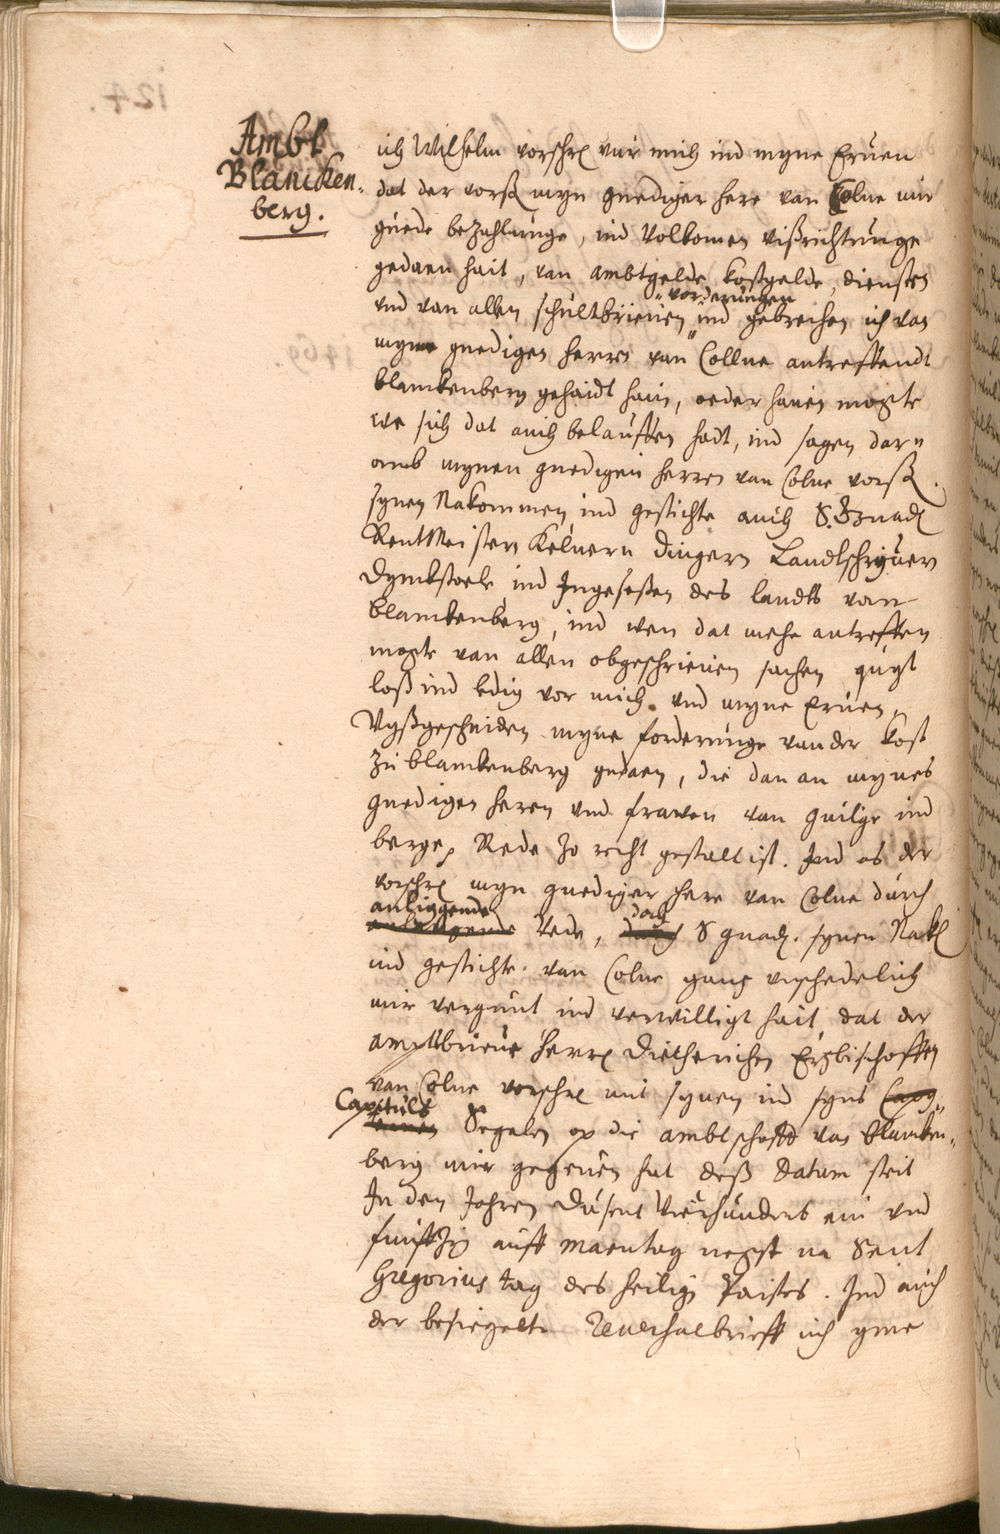 Ambt
Blancken-
berg.
ich Wilhelm vorschr. vur mich ind myne Eruen
dat der vorß. myn gnediger here van Colne mir
guede bezahlunge, ind volkomen vißrichtunge
gedaen hait, van ambtgelde, kostgelde, diensten
vnd van allen schultbrieuen vorderungen ind gebrechen ich van
myme gnedigen herren van Collne antreffendt
blanckenberg gehaidt hain, oeder hauen mogte
we sich dat auch belauffen hadt, ind sagen darumb
mynen gnedigen herren van Colne vorß.
synen Nakommen ind gestichte auch S. Gnad.
RentMeistern Kelnern dingern Landtschryuern
Dynckstoele ind Ingeseßen des landts van
blanckenberg, ind wen dat mehe antreffen
mogte van allen obgeschrieuen sachen quyt
loß ind ledig vor mich vnd myne Eruen,
Vyßgescheiden myne forderunge van der kost
zu blanckenberg gedaen, die dan an mynes
gnedigen heren vnd frawen van Guilge ind
berge Rede zo recht gestalt ist. Ind as der
vorschr. myn gnediger here van Colne durch
anliggende bede, doch S gnad. synen Nak.
ind gestichte van Colne gans vnschedelich
mir vergunt ind verwilligt hait, dat der
amptbrieue herr Dietherichen Erzbischoffen
van Colne vorschr. mit synen ind syns
Capittuls Segelen op die ambtschafft van blancken-
berg mir gegeuen hat deß datum steit
In den Jahren Dusent Vierhundert ein vnd
funfftzig auff maentag negst na Sent
Gregorius tag des heilig. Paistes. Ind auch
der besiegelte Reuersalbrieff ich yme